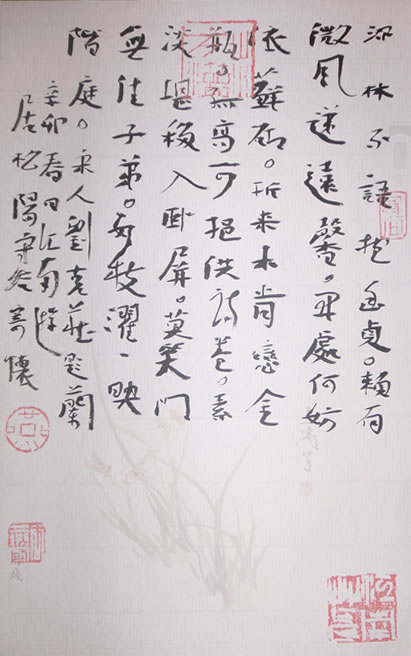 深林不語抱幽貞。賴有
微風遞遠馨。開處何妨
依蘚砌。折來未肯戀金
瓶。孤高可挹供詩卷。素
淡堪移入卧屏。莫笑門
無佳子弟。數枝濯、映
階庭。宋人劉克莊題蘭
辛卯春日江南
居松陽守 寄懷